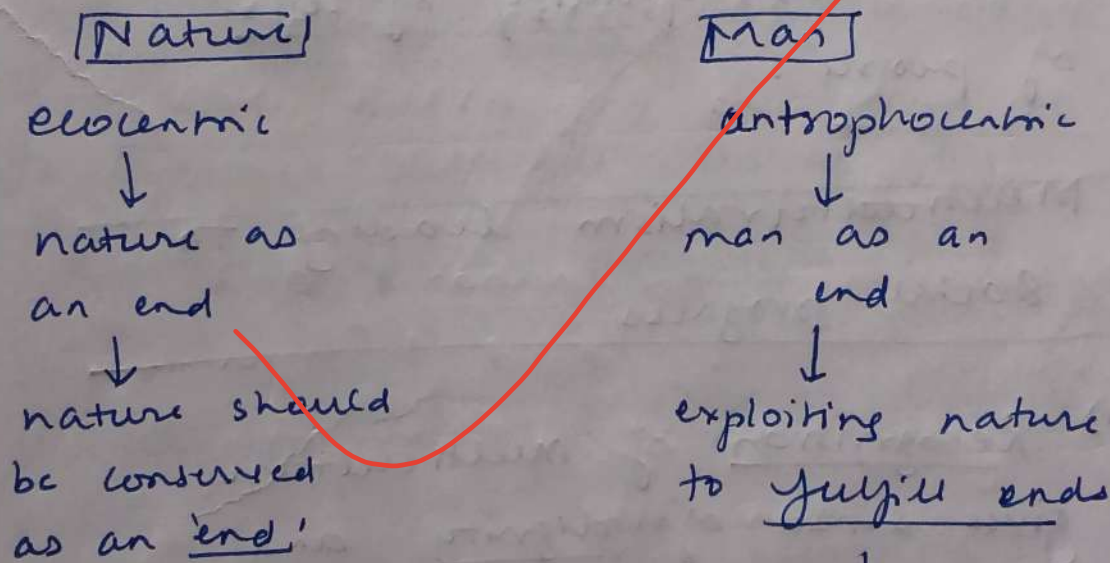 Nature
ecocentric
↓
nature as
an end
↓
nature should
be conserved
as an 'end'
Man
antrophocentric
↓
man as an
end
↓
exploiting nature
to fulfill ends